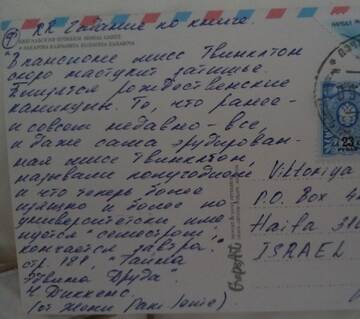 RR Гадание по книге.
"В пансионе мисс Твинклтон
скоро наступит затишье.
Близятся рождественские
каникулы. То, что ранее -
и совсем недавно - все,
и даже сама эрудирован-
ная мисс Твинклтон,
называли полугодием
и что теперь более
изящно и более по-
университетски име-
нуется "семестром",
кончается завтра."
стр. 188, "Тайна
Эдвина Друда"
Ч. Диккенс.
23
Viktoriya
P.O. Box
Haifa
ISRAEL